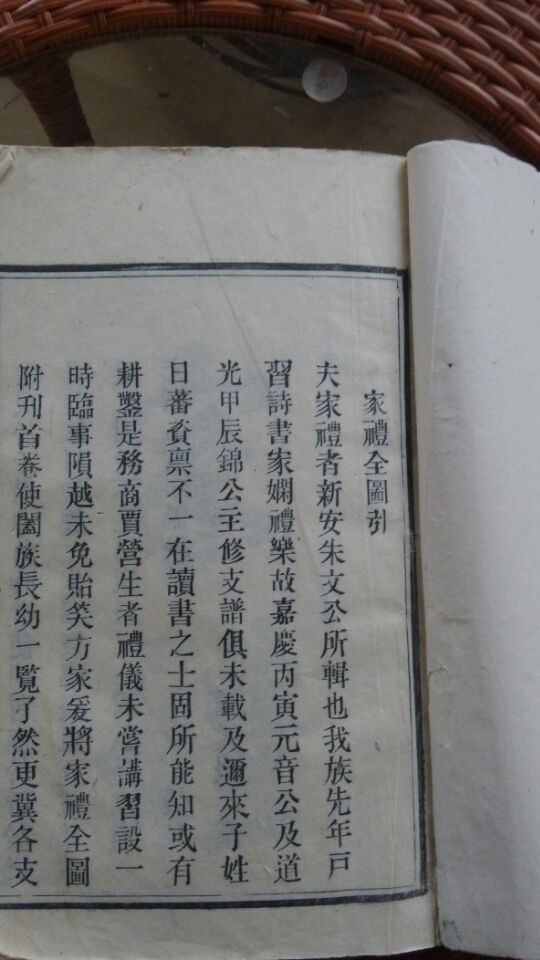 家禮全圖引
夫家禮者新安朱文公所輯也我族先年戸
習詩書家嫻禮樂故嘉慶丙寅元音公及道
光甲辰錦公主修支譜俱未載及邇來子姓
日蕃資禀不一在讀書之士固所能知或有
耕鑿是務商賈營生者禮儀未嘗講習設一
時臨事隕越未免貽笑方家爰將家禮全圖
附刊首卷使闔族長幼一覧了然更冀各支